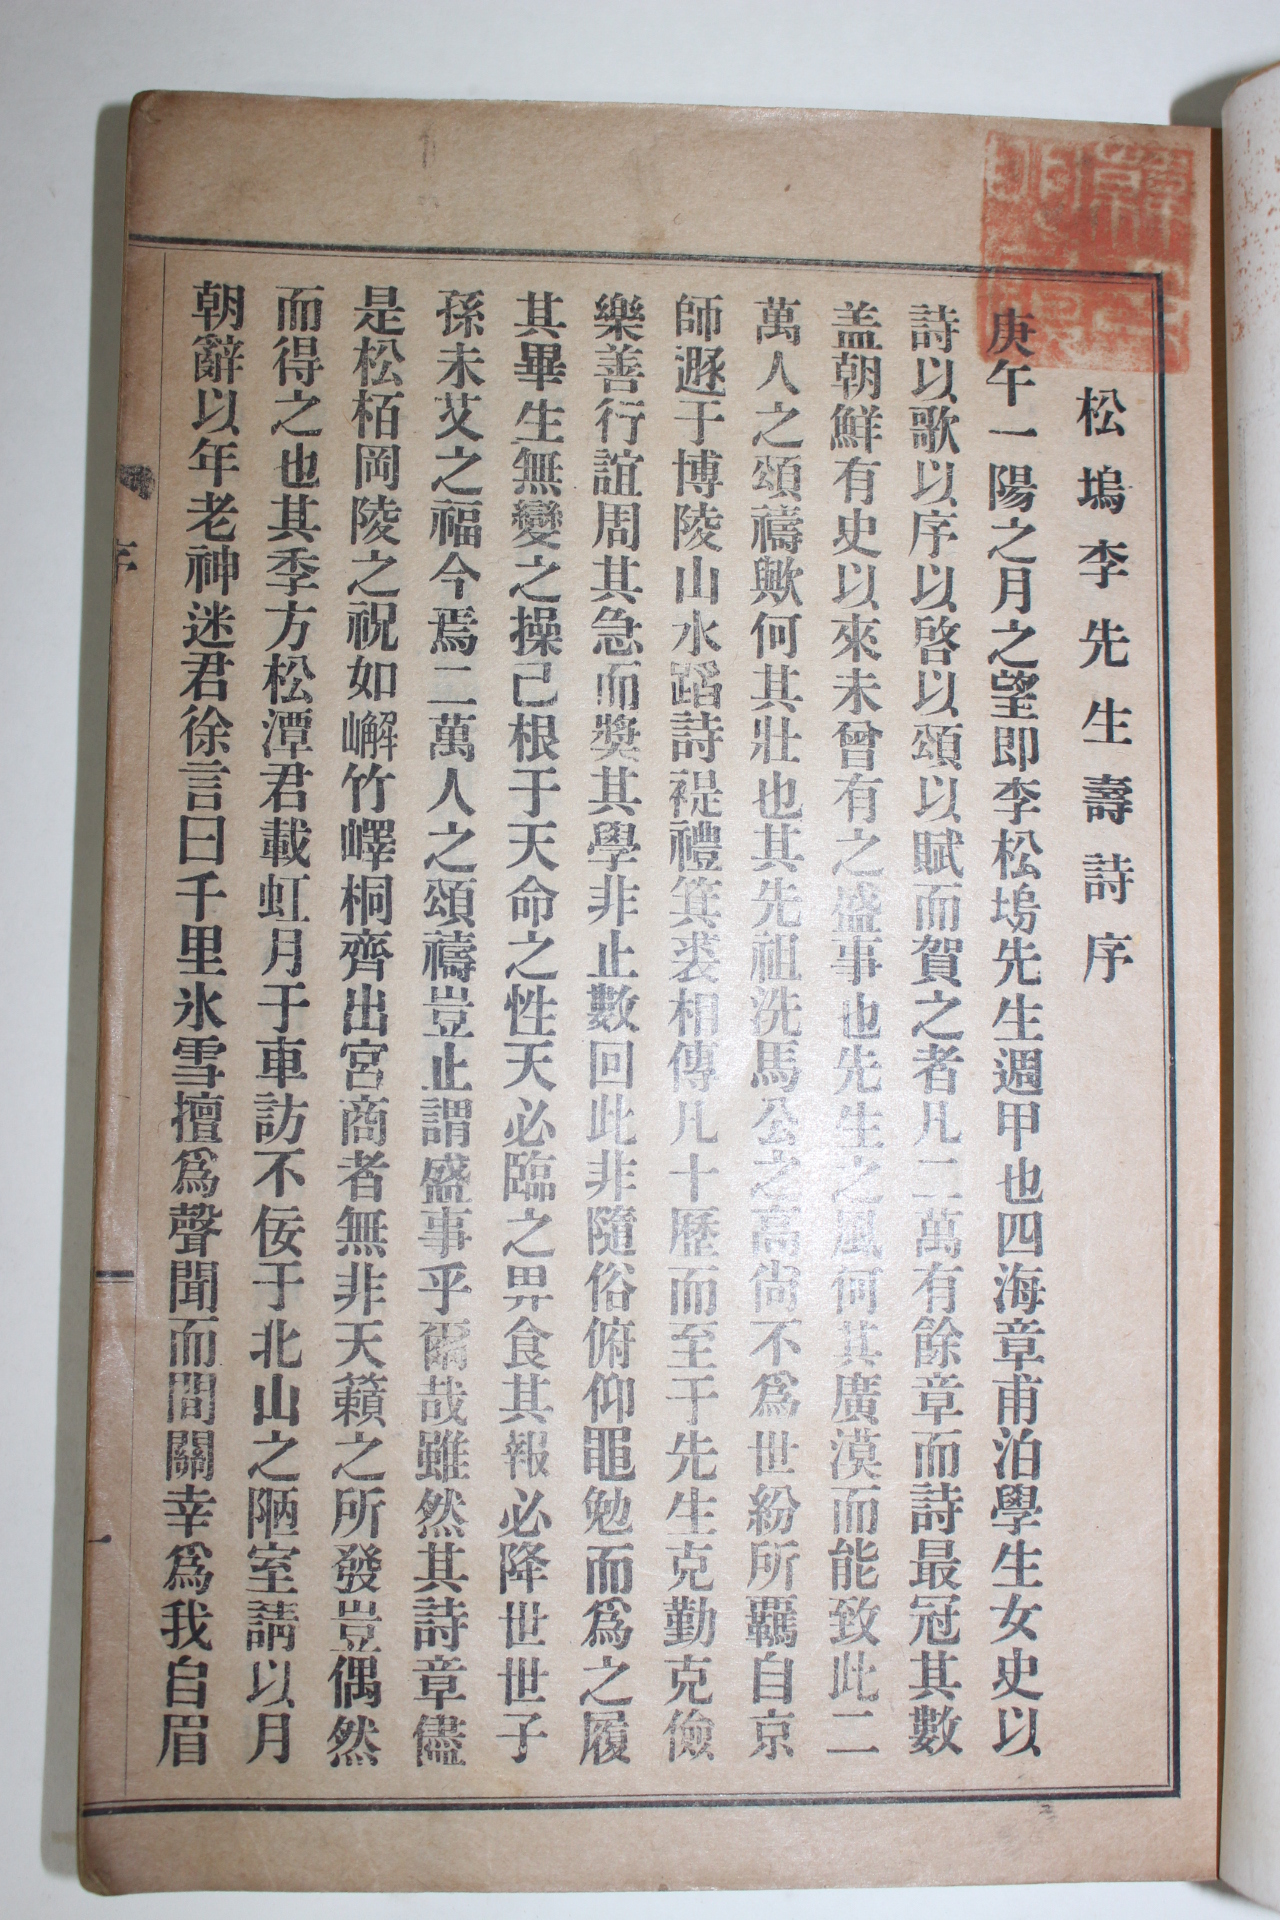 松塢李先生壽詩序
庚午一陽之月之望卽李松塢先生週甲也四海章甫洎學生女史以
詩以歌以序以啓以頌以賦而賀之者凡二萬有餘章而詩最冠其數
盖朝鮮有史以來未曾有之盛事也先生之風何其廣漠而能致此二
萬人之頌禱歟何其壯也其先祖洗馬公之高尙不爲世紛所羈自京
師遯于博陵山水蹈詩禔禮箕裘相傳凡十歷而至于先生克勤克儉
樂善行誼周其急而奬其學非止數回此非隨俗俯仰黽勉而爲之履
其畢生無變之操己根于天命之性天必臨之畀食其報必降世世子
孫未艾之福今焉二萬人之頌禱豈止謂盛事乎爾哉雖然其詩章儘
是松栢岡陵之祝如嶰竹嶧桐齊出宮商者無非天籟之所發豈偶然
而得之也其季方松潭君載虹月于車訪不佞于北山之陋室請以月
朝辭以年老神迷君徐言曰千里氷雪擅爲聲聞而間關幸爲我自眉
序
一